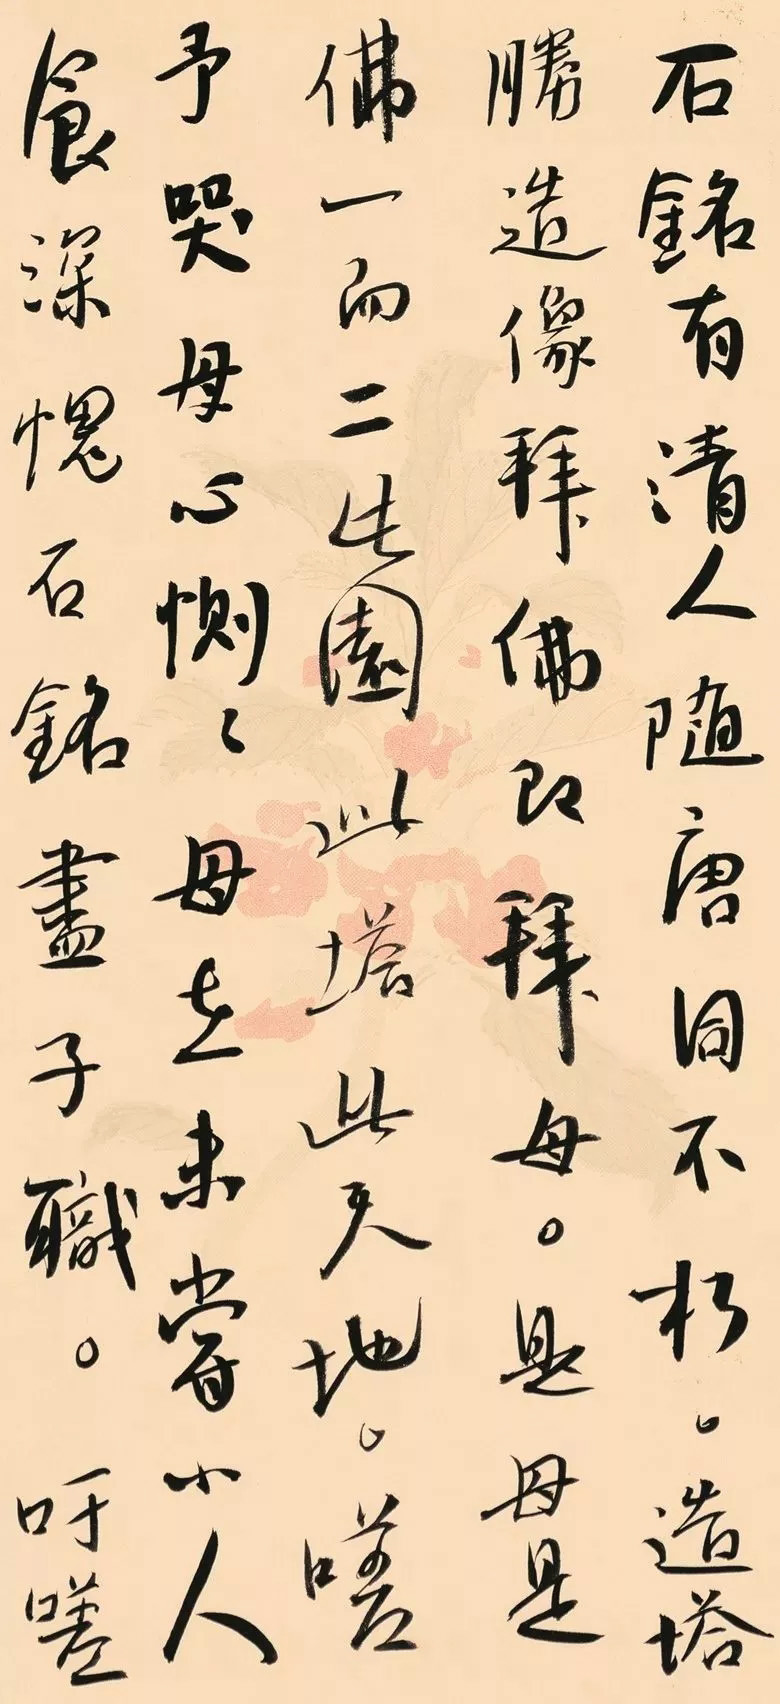 石銘有清人随唐同不朽。造塔
勝造像拜佛即拜母。是母是
佛一而二此園此塔此天地。嗟
予哭母心惻〻母在未嘗小人
食深愧石銘盡子職。吁嗟